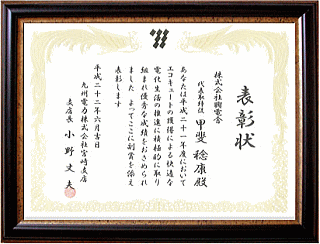 表彰状
株式会社興電舎
代表取締役 甲斐 稔康 殿
あなたは平成二十一年度において
エコキュートの獲得による快適な
電化生活の推進に積極的に取り
組まれ優秀な成績をおさめられ
ました よってここに副賞を添え
表彰します
平成二十二年六月吉日
九州電力株式会社宮崎支店
支店長 小野 丈夫